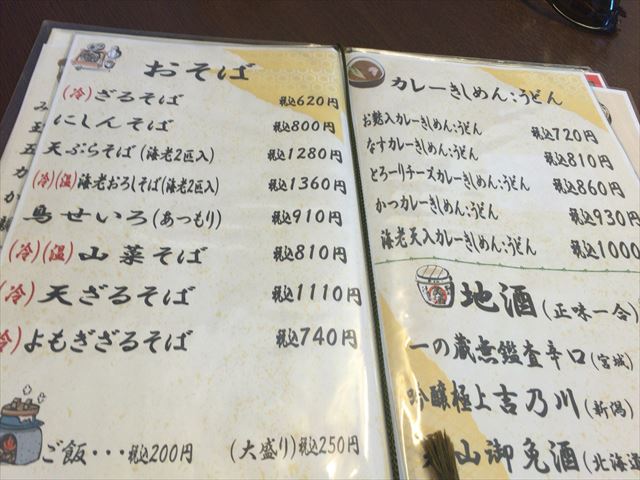 おそば
(冷)ざるそば 税込620円
にしんそば 税込800円
天ぷらそば(海老2匹入) 税込1280円
(冷)(温)海老おろしそば(海老2匹入) 税込1360円
鳥せいろ(あつもり) 税込910円
(冷)(温)山菜そば 税込810円
(冷)天ざるそば 税込1110円
(冷)よもぎざるそば 税込740円
ご飯・・・税込200円 (大盛り)税込250円
カレーきしめん:うどん
お麩入カレーきしめん:うどん 税込720円
なすカレーきしめん:うどん 税込810円
とろーりチーズカレーきしめん:うどん 税込860円
かつカレーきしめん:うどん 税込930円
海老天入カレーきしめん:うどん 税込1000
地酒(正味一合)
一の蔵無鑑査辛口(宮城)
吟醸極上吉乃川(新潟)
山御免酒(北海道